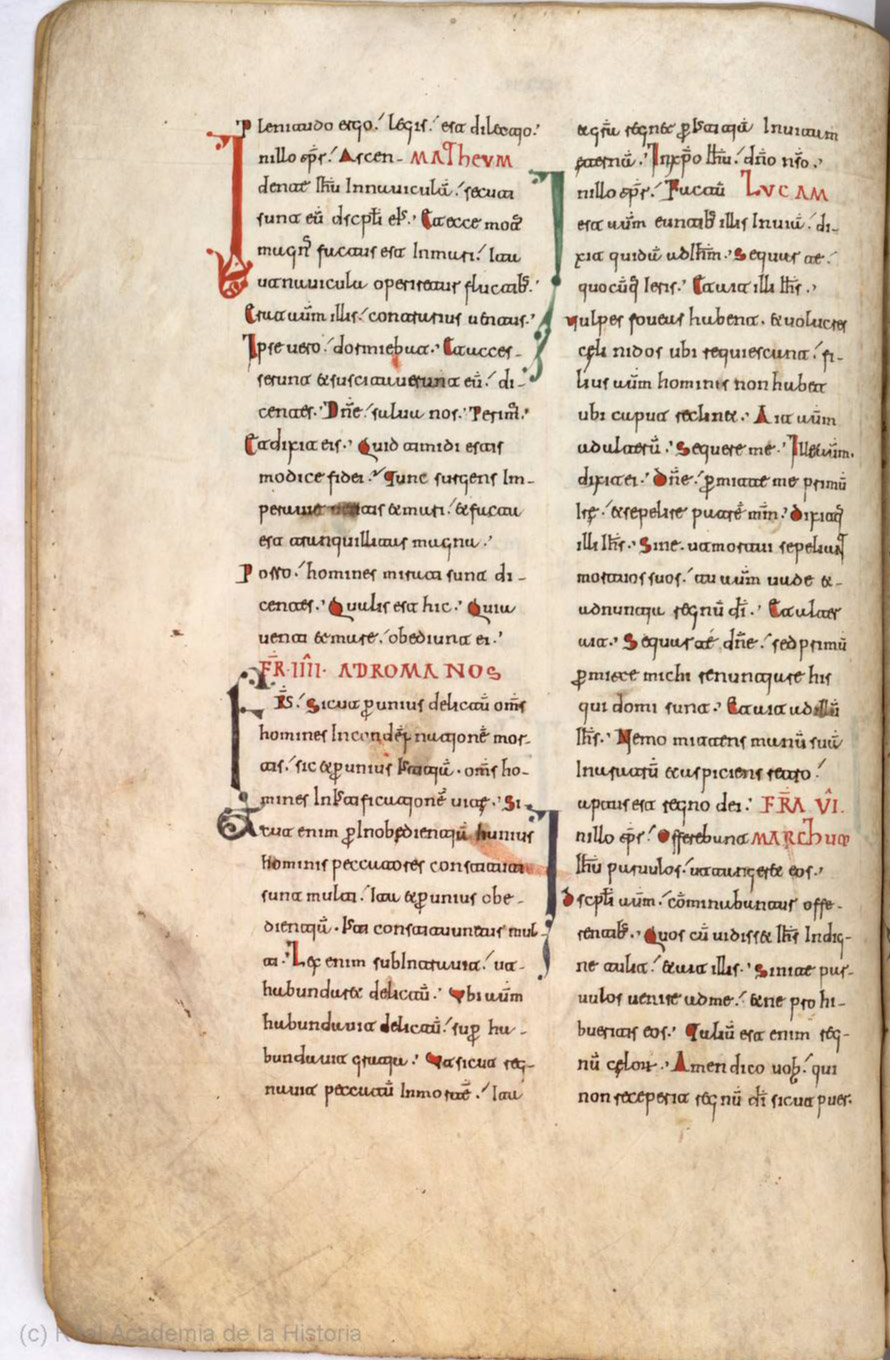 Plenitudo ergo legis est dilectio
In illo tp̄re Ascen- MATHEVM
dente Ihū In nauiculā secuti
sunt eū dscpl̄i eIs. Et ecce mot
magn factus est In mari Ita
ut nauicula operiretur fluctib.
Erat aūm illis contrarius uentus.
Ipse uero dormiebat. Et acces-
serunt et suscitauerunt eū di-
centes. Dn̄e salua nos. Perim.
Et dixit eis. Quid timidi estis
modice fidei. Tunc surgens Im-
perauit uentis et mari et factū
est tranquillitas magna.
Porro homines mirati sunt di-
centes. Qualis est hic. Quia
uenti et mare obediunt ei.
FR̄. IIII. AD ROMANOS
FR̄S. Sicut p̱ unius delictū om̄s
homines In condēpnationē mor-
tis sic et p̱ unius Istitiā. om̄s ho-
mines In Istificationē uitę. Si-
cut enim p̱ Inobędientiā hunius
hominis peccatores constituti
sunt multi Ita et p̱ unius obe-
dientiā. Isti constituuntur mul-
ti. Lex enim subIntrauit ut
habundaret delictū. Ubi aūm
habundauit delictū sup̱ ha-
bundauit gratia. Ut sicut reg-
nauit peccatū In mortē. Ita
et grā regnet p̱ Istitiā In uitam
eternā. In xp̄o Ihū dn̄o nr̄o.
In illo tp̄re Factū LVCAM
est aūm euntib illis In uiā. di-
xit quidā ad Ihm̄. Sequar te
quocūq Ieris. Et ait illi Ihs̄.
Uulpes foueas habent. et uolucres
cęli nidos ubi requiescant fi-
lius aūm hominis non habet
ubi caput reclinet. Ait aūm
ad alterū. Sequere me. Ille aūm.
dixit ei. Dn̄e p̱mitte me primū
Ire et sepelire patrē mm̄. Dixitq
illi Ihs̄. Sine. ut mortui sepeliant
mortuos suos tu aūm uade et-
adnuntia regnū dī. Et alter
ait. Sequar te dn̄e sed primū
p̱mitte michi renuntiare his
qui domi sunt. Et ait ad illū
Ihs̄. Nemo mittens manū suā
In aratrū et aspiciens retro
aptus est regno dei. FR̄A VI.
In illo tp̄re Offerebant MARCHUM
Ihū paruulos ut tangeret eos.
Dscpl̄i aūm cōminabantur offe-
rentib. Quos cū uidisset Ihs̄ Indig-
ne tulit et ait illis. Sinite par-
uulos uenire ad me et ne prohi-
bueritis eos. Taliū est enim reg-
nū cęlor. Amen dico uob qui
non receperit regnū dī sicut puer.
(c) Real Academia de la Historia